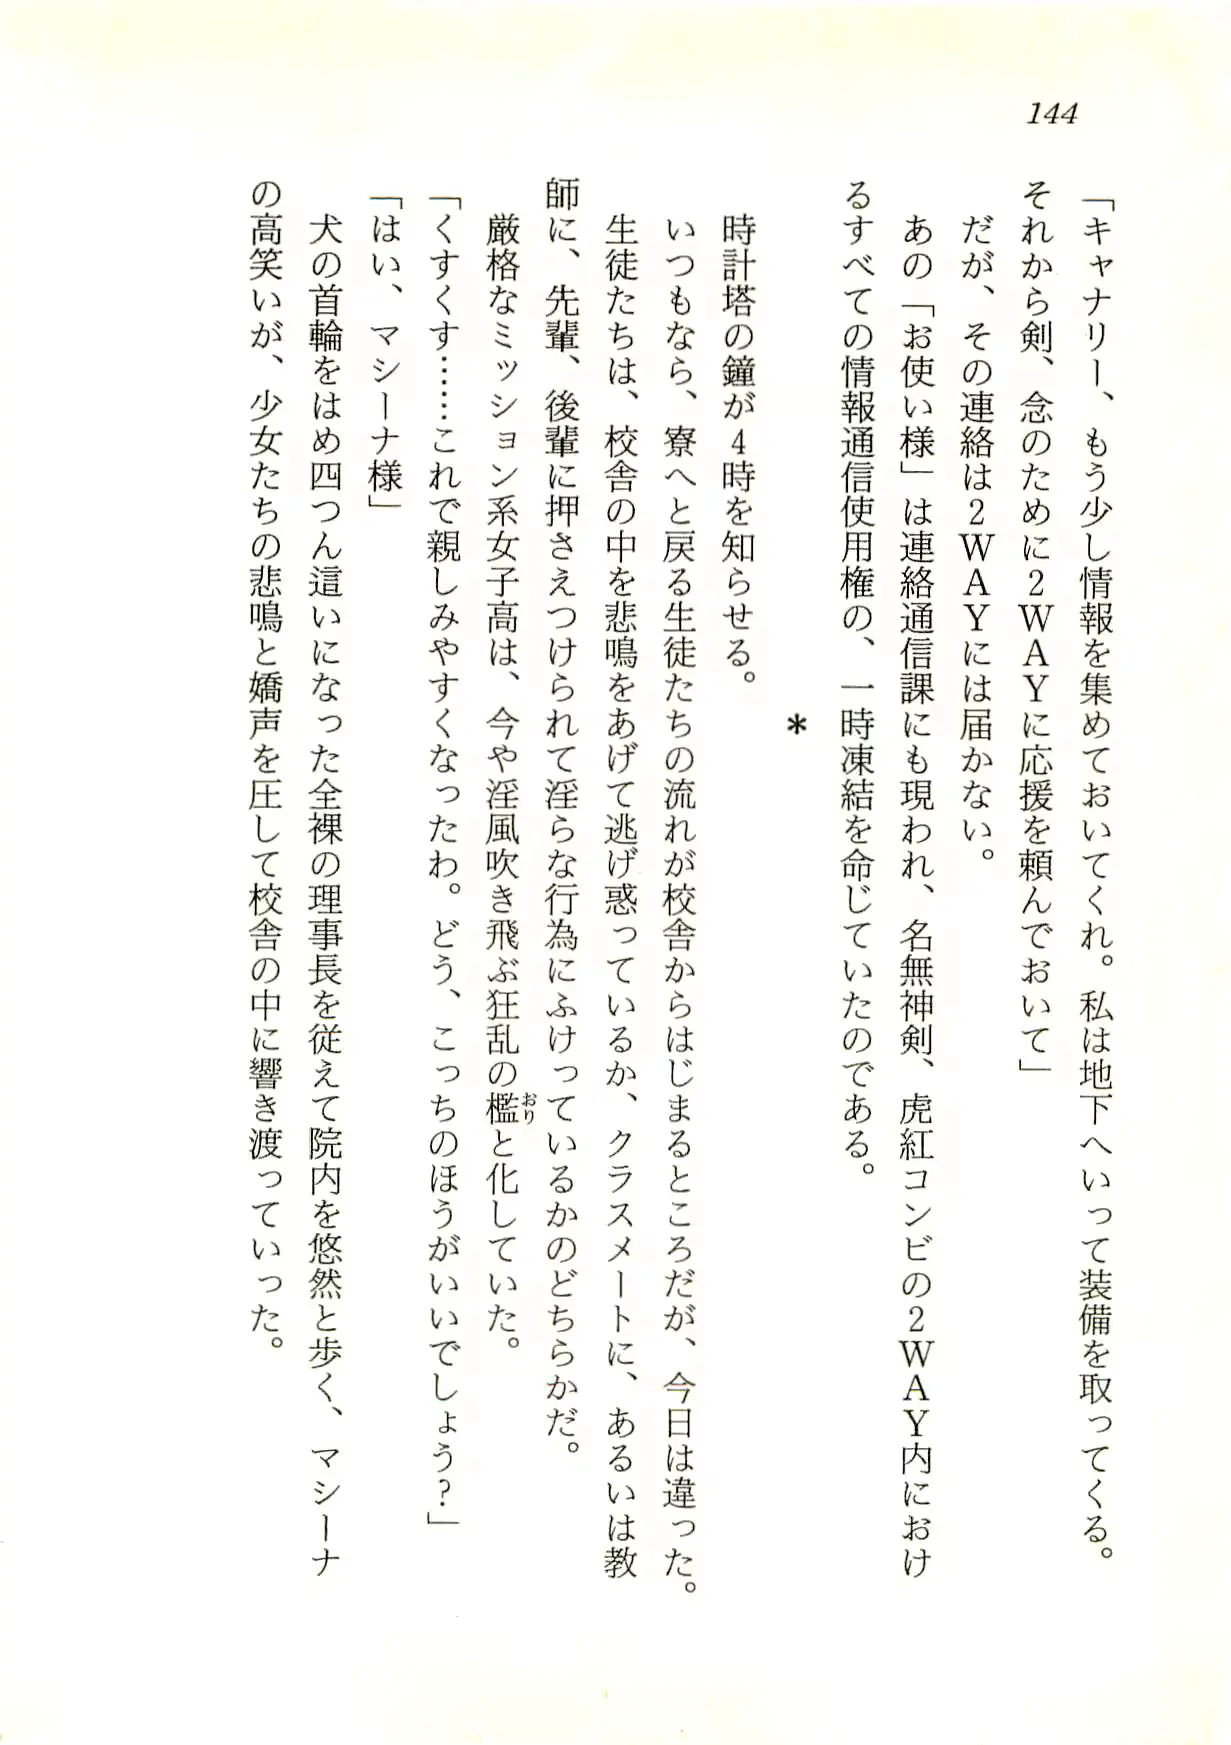 144
「キャナリー、もう少し情報を集めておいてくれ。私は地下へいって装備を取ってくる。
それから剣、念のために２ＷＡＹに応援を頼んでおいて」
だが、その連絡は２ＷＡＹには届かない。
あの「お使い様」は連絡通信課にも現われ、名無神剣、虎紅コンビの２ＷＡＹ内におけ
るすべての情報通信使用権の、一時凍結を命じていたのである。
＊
時計塔の鐘が４時を知らせる。
いつもなら、寮へと戻る生徒たちの流れが校舎からはじまるところだが、今日は違った。
生徒たちは、校舎の中を悲鳴をあげて逃げ惑っているか、クラスメートに、あるいは教
師に、先輩、後輩に押さえつけられて淫らな行為にふけっているかのどちらかだ。
厳格なミッション系女子高は、今や淫風吹き飛ぶ狂乱の檻おりと化していた。
「くすくす……これで親しみやすくなったわ。どう、こっちのほうがいいでしょう？」
「はい、マシーナ様」
犬の首輪をはめ四つん這いになった全裸の理事長を従えて院内を悠然と歩く、マシーナ
の高笑いが、少女たちの悲鳴と嬌声を圧して校舎の中に響き渡っていった。